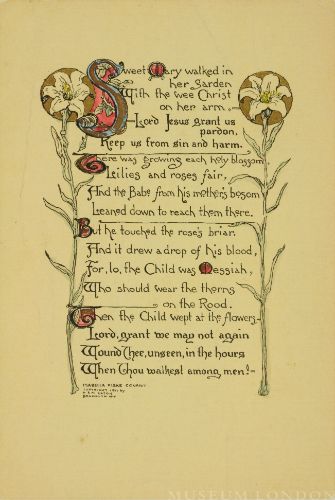 Sweet Mary walked in
her Garden
With the wee Christ
on her arm.—
—Lord Jesus grant us
pardon,
Keep us from sin and harm.
There was growing each holy blossom
Lilies and roses fair,
And the Babe from his mother's bosom
Leaned down to reach them there.
But he touched the rose's briar,
And it drew a drop of his blood,
For, lo, the Child was Messiah,
Who should wear the thorns
on the Rood.
Then the Child wept at the flowers—
Lord, grant we may not again
Wound Thee, unseen, in the hours
When Thou walkest among men!—
MARTHA FISKE CONANT
COPYRIGHT 1911 BY
BROOKLYN NY
MUSEUM LONDON